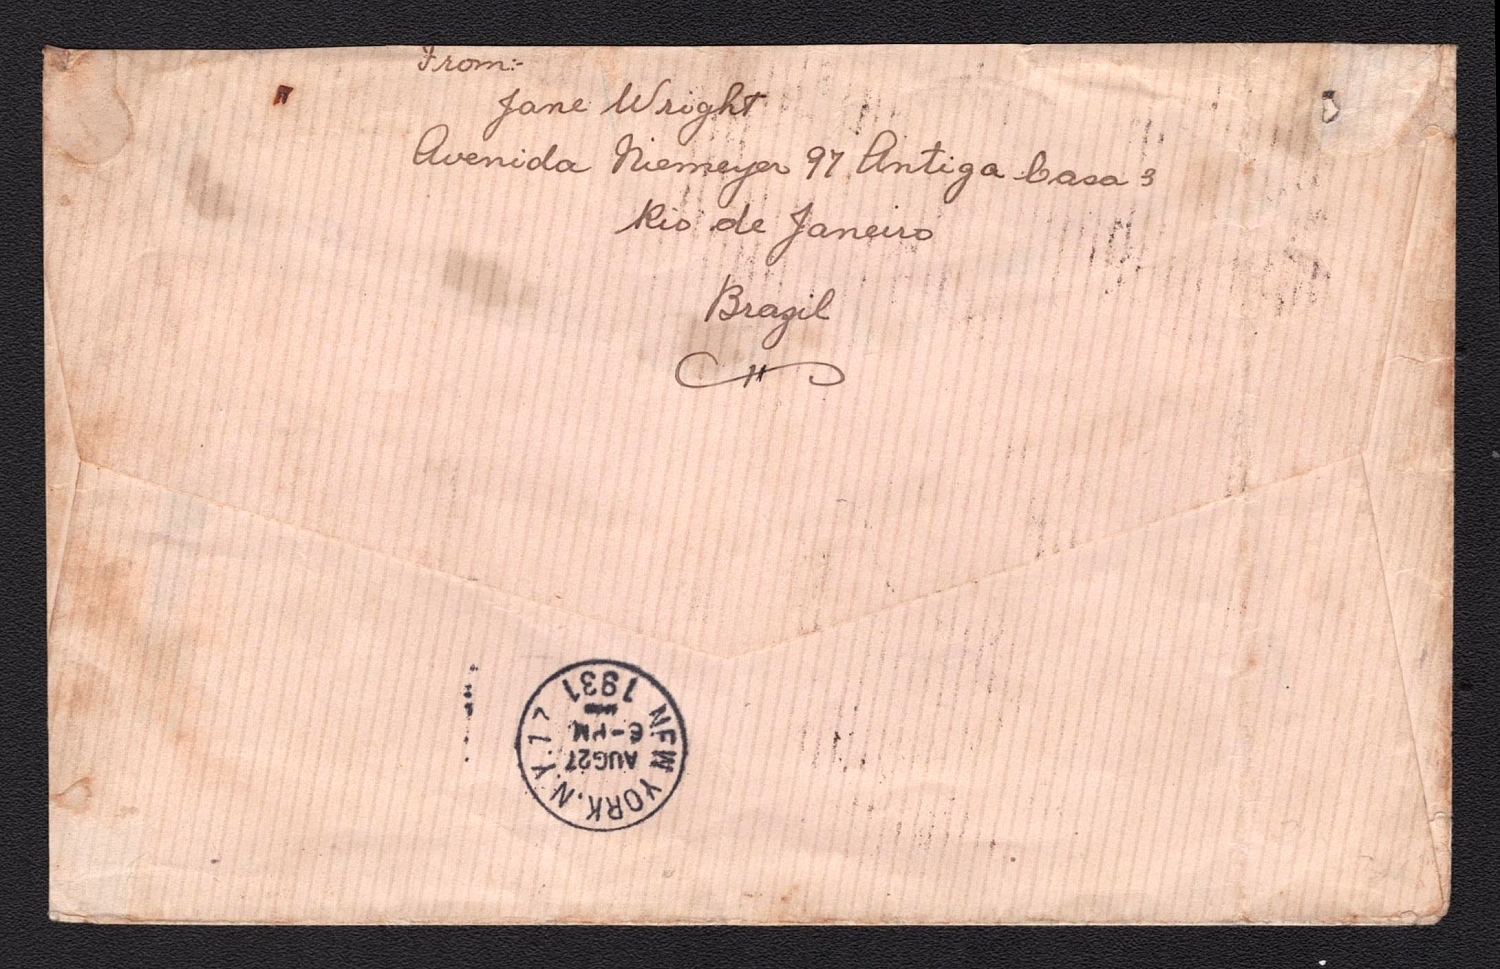 From:-
Jane Wright
Avenida Niemeyer 97 Antiga Casa 3
Rio de Janeiro
Brazil
NEW YORK, N.Y. 17
AUG 27
6-PM
1931